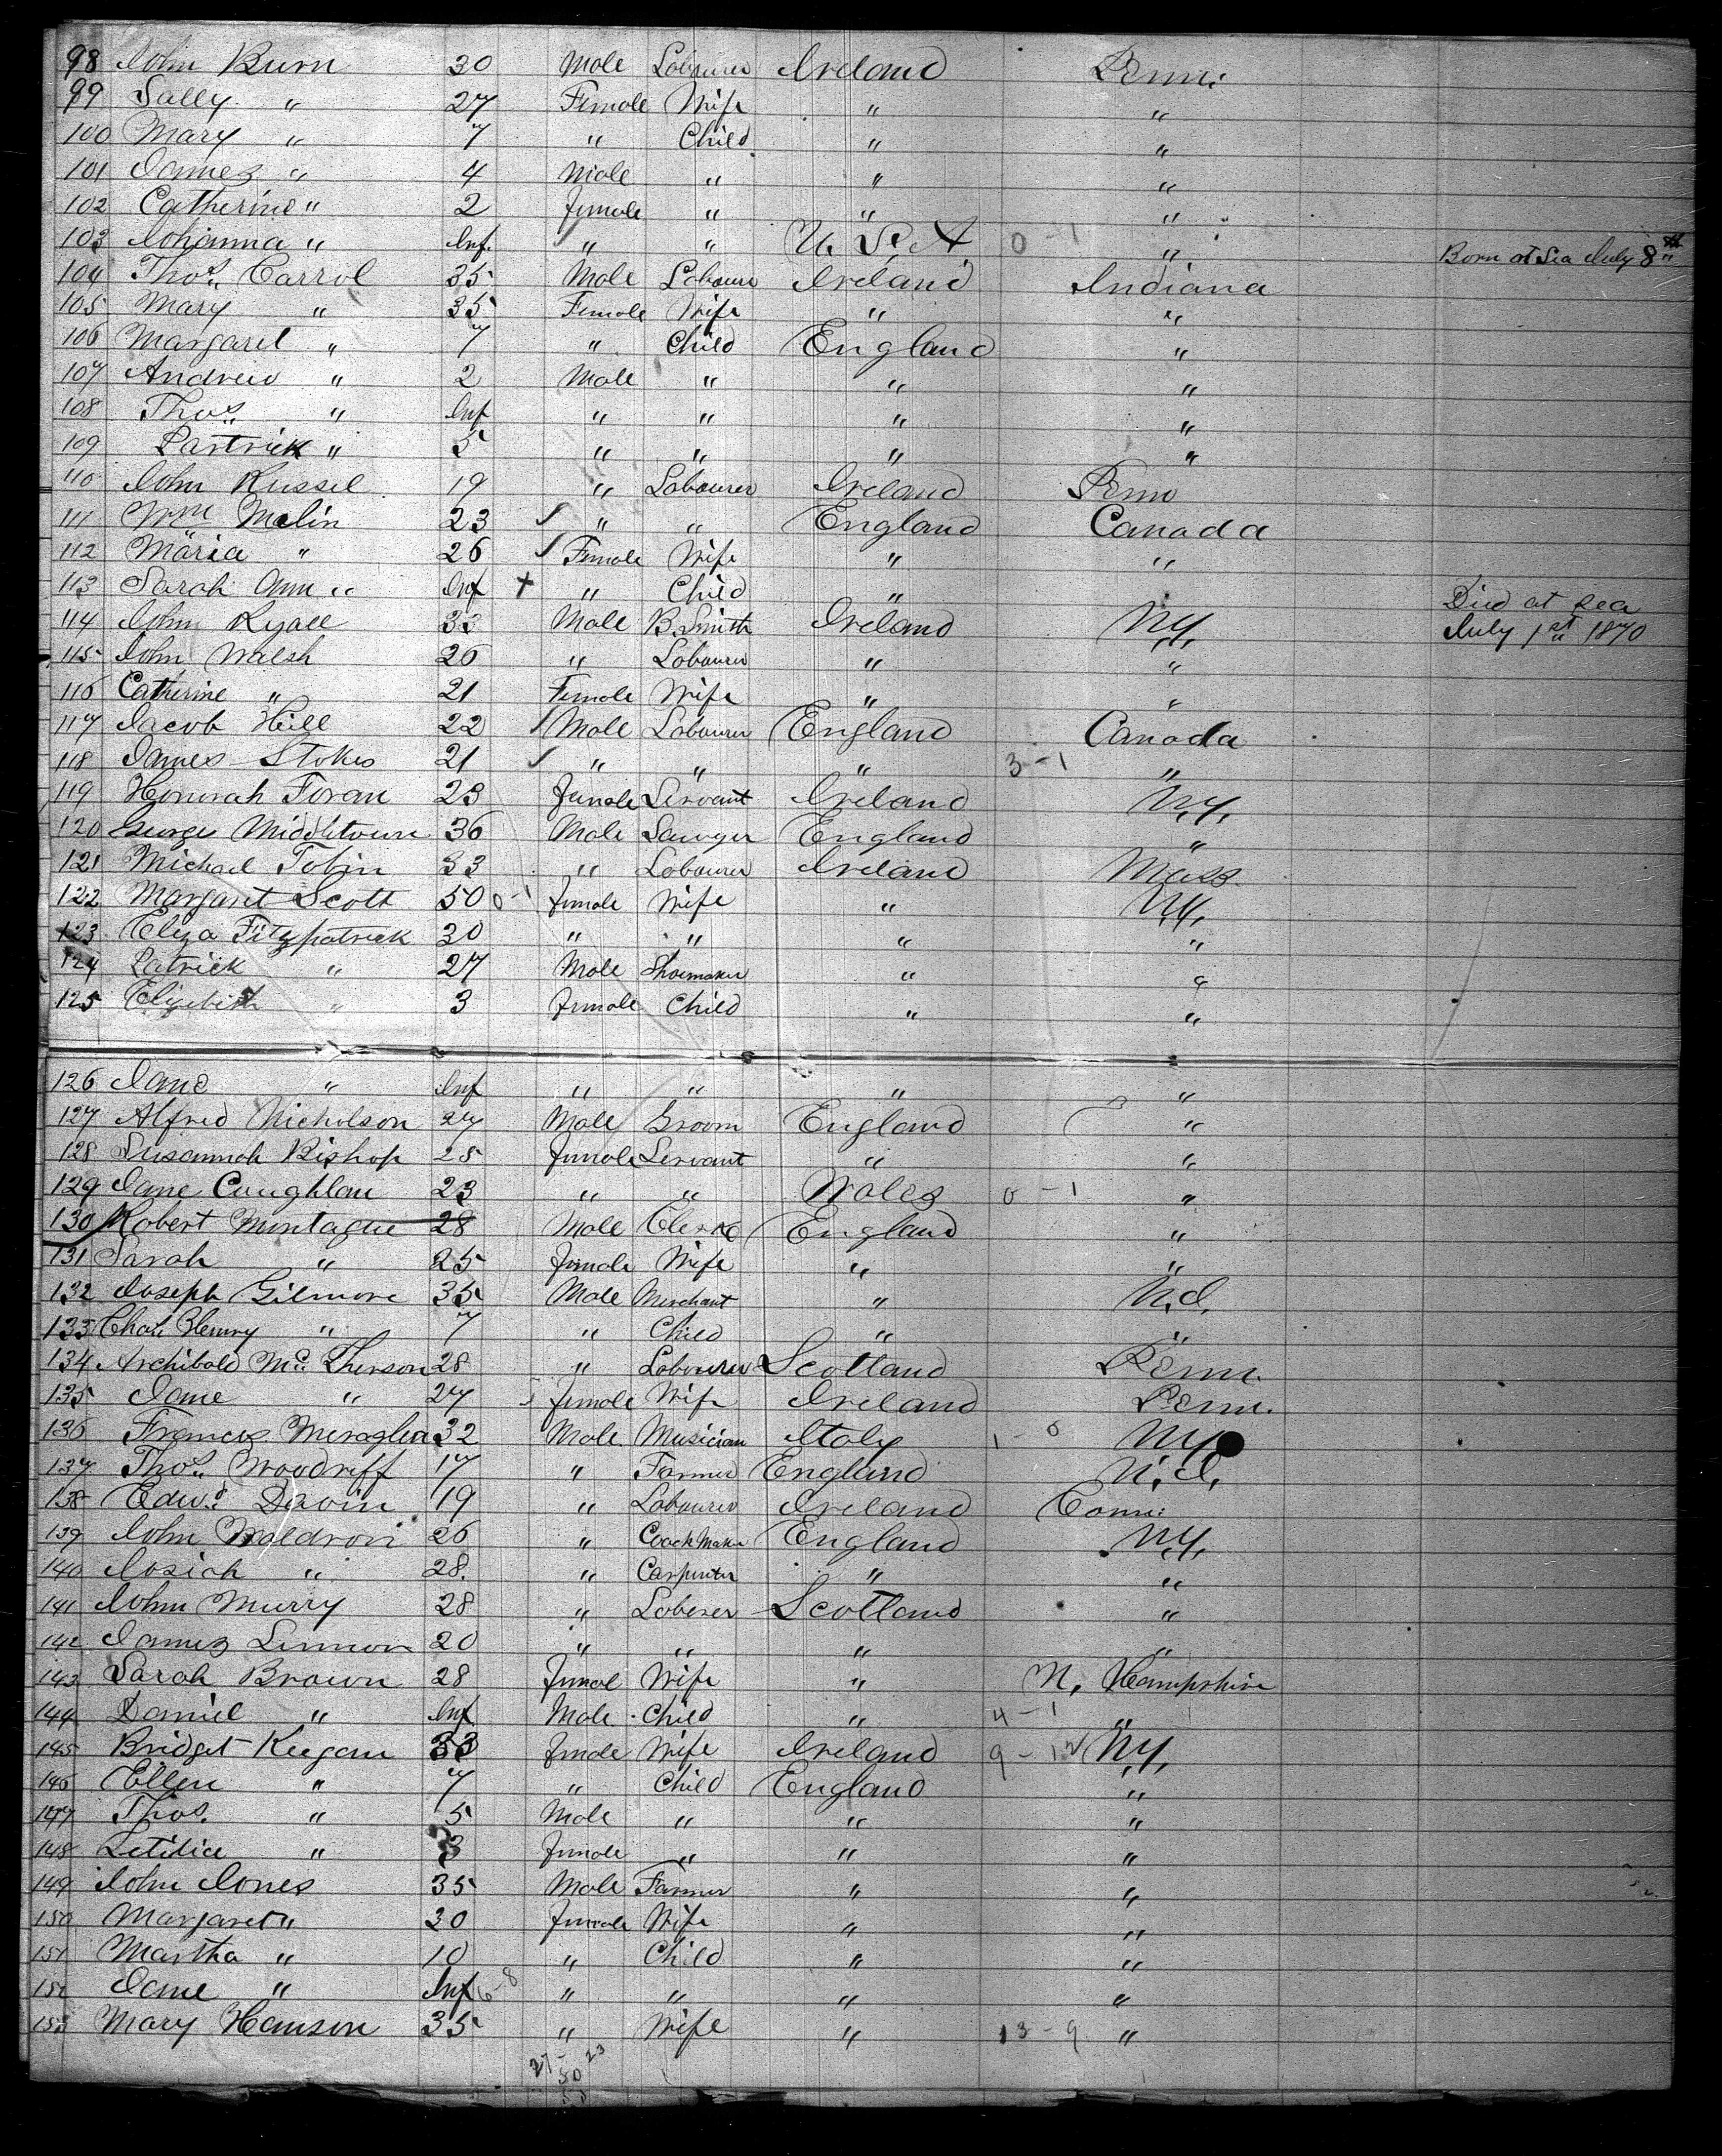 98 John Burn 30 Male Labourer Ireland Penn.
99 Sally " 27 Female Wife " "
100 Mary " 7 " Child " "
101 James " 4 Male " " "
102 Catherine " 2 female " " "
103 Johanna " Inf. " " U. S. A. 0 - 1 " Born at Sea July 8th
104 Thos. Carrol 35 Male Labourer Ireland Indiana
105 Mary " 35 Female Wife " "
106 Margaret " 7 " Child England "
107 Andrew " 2 Male " " "
108 Thos. " Inf " " " "
109 Partrick " 5 " " " "
110 John Russel 19 " Labourer Ireland Penn
111 Wm Malin 23 " " England Canada
112 Maria " 26 Female Wife " "
113 Sarah Ann " Inf + " Child " Died at sea
114 John Ryall 33 Male B. Smith Ireland N.Y. July 1st 1870
115 John Walsh 26 " Labourer " "
116 Catherine " 21 Female Wife " "
117 Jacob Hill 22 Male Labourer England Canada
118 James Stokes 21 " " " 3 - 1 "
119 Honorah Foran 23 female Servant Ireland N.Y.
120 George Middletown 36 Male Sawyer England "
121 Michael Tobin 33 " Labourer Ireland Mass.
122 Margaret Scott 50 0 - 1 female Wife " N.Y.
123 Eliza Fitzpatrick 30 " " " "
124 Patrick " 27 Male Shoemaker " "
125 Elizebeth " 3 female Child " "
126 Jane " Inf " " " "
127 Alfred Nicholson 27 Male Groom England "
128 Susannah Bishop 25 female Servant " "
129 Jane Coughlan 23 " " Wales 0 - 1 "
130 Robert Montague 28 Male Clerk England "
131 Sarah " 25 female Wife " "
132 Joseph Gilmore 35 Male Merchant " N.J.
133 Chas. Henry " 7 " Child " "
134 Archibald Mc. Pherson 28 " Labourer Scotland Penn.
135 Jane " 27 female Wife Ireland Penn.
136 Francis Miraglia 32 Male Musician Italy 1 - 0 N.Y.
137 Thos. Woodriff 17 " Farmer England N.J.
138 Edwd. Davin 19 " Labourer Ireland Conn.
139 John Waldron 26 " Coach Maker England N.Y.
140 Josiah " 28. " Carpenter " "
141 John Murry 28 " Laborer Scotland "
142 James Lennon 20 " " " "
143 Sarah Brown 28 femal Wife " N. Hampshire
144 Daniel " Inf Male Child " 4 - 1 "
145 Bridget Keegan 33 female Wife Ireland 9 - 1 N.Y.
146 Ellen " 7 " Child England "
147 Thos. " 5 Male " " "
148 Letitia " 3 female " " "
149 John Jones 35 Male Farmer " "
150 Margaret " 30 female Wife " "
151 Martha " 10 " Child " "
152 Jane " Inf 6-8 " " " "
153 Mary Hanson 35 " Wife " 13 - 9 "
27 - 23
50